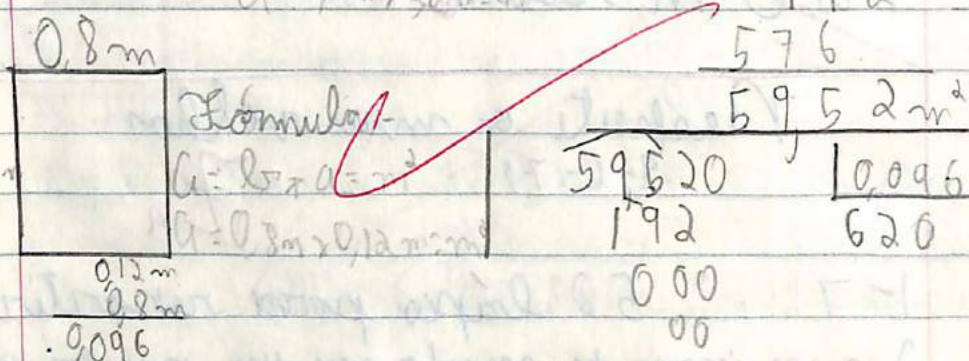 0,8 m
Fórmula-
a = b x a = m²
a = 0,8m x 0,12m = m²
0,12 m
0,8 m
0,096
576
59,52 m²
59,520 | 0,096
192 620
000
00